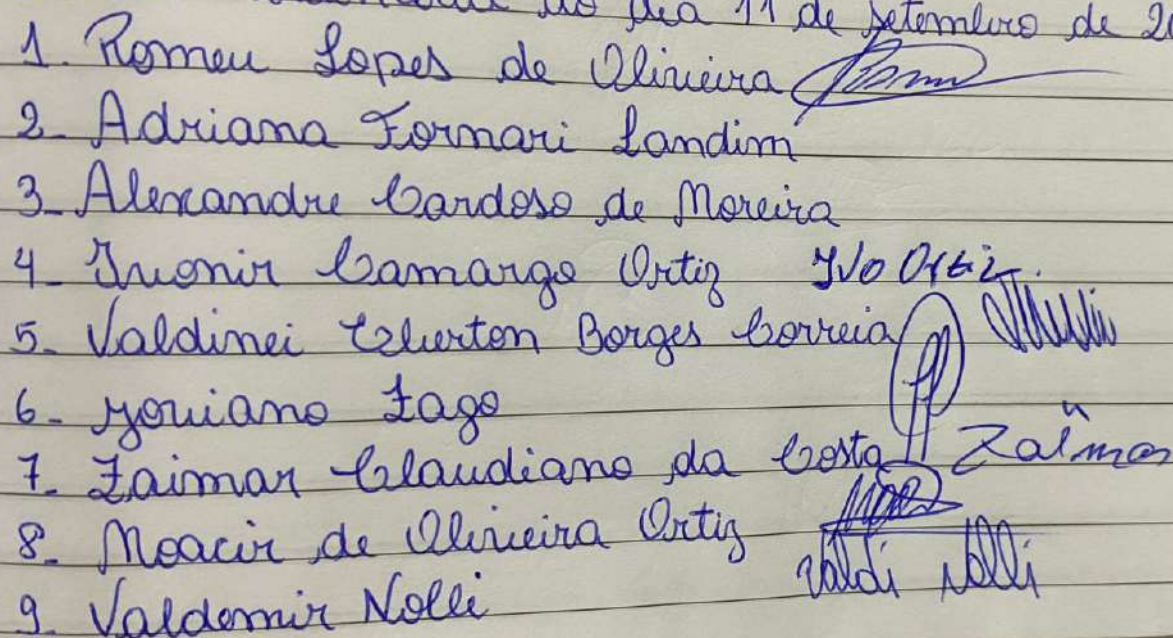 no dia 11 de setembro de 20
1. Romeu Lopes de Oliveira
2- Adriana Fornari Landim
3- Alexandre Cardoso de Moreira
4- Ivonir Camargo Ortiz Ivo Ortiz.
5- Valdinei Borges Correia
6- Joviano Zago
7- Zaimar Claudiano da Costa Zaimar
8- Moacir de Oliveira Ortiz
9. Valdemir Nolli Valdi Nolli